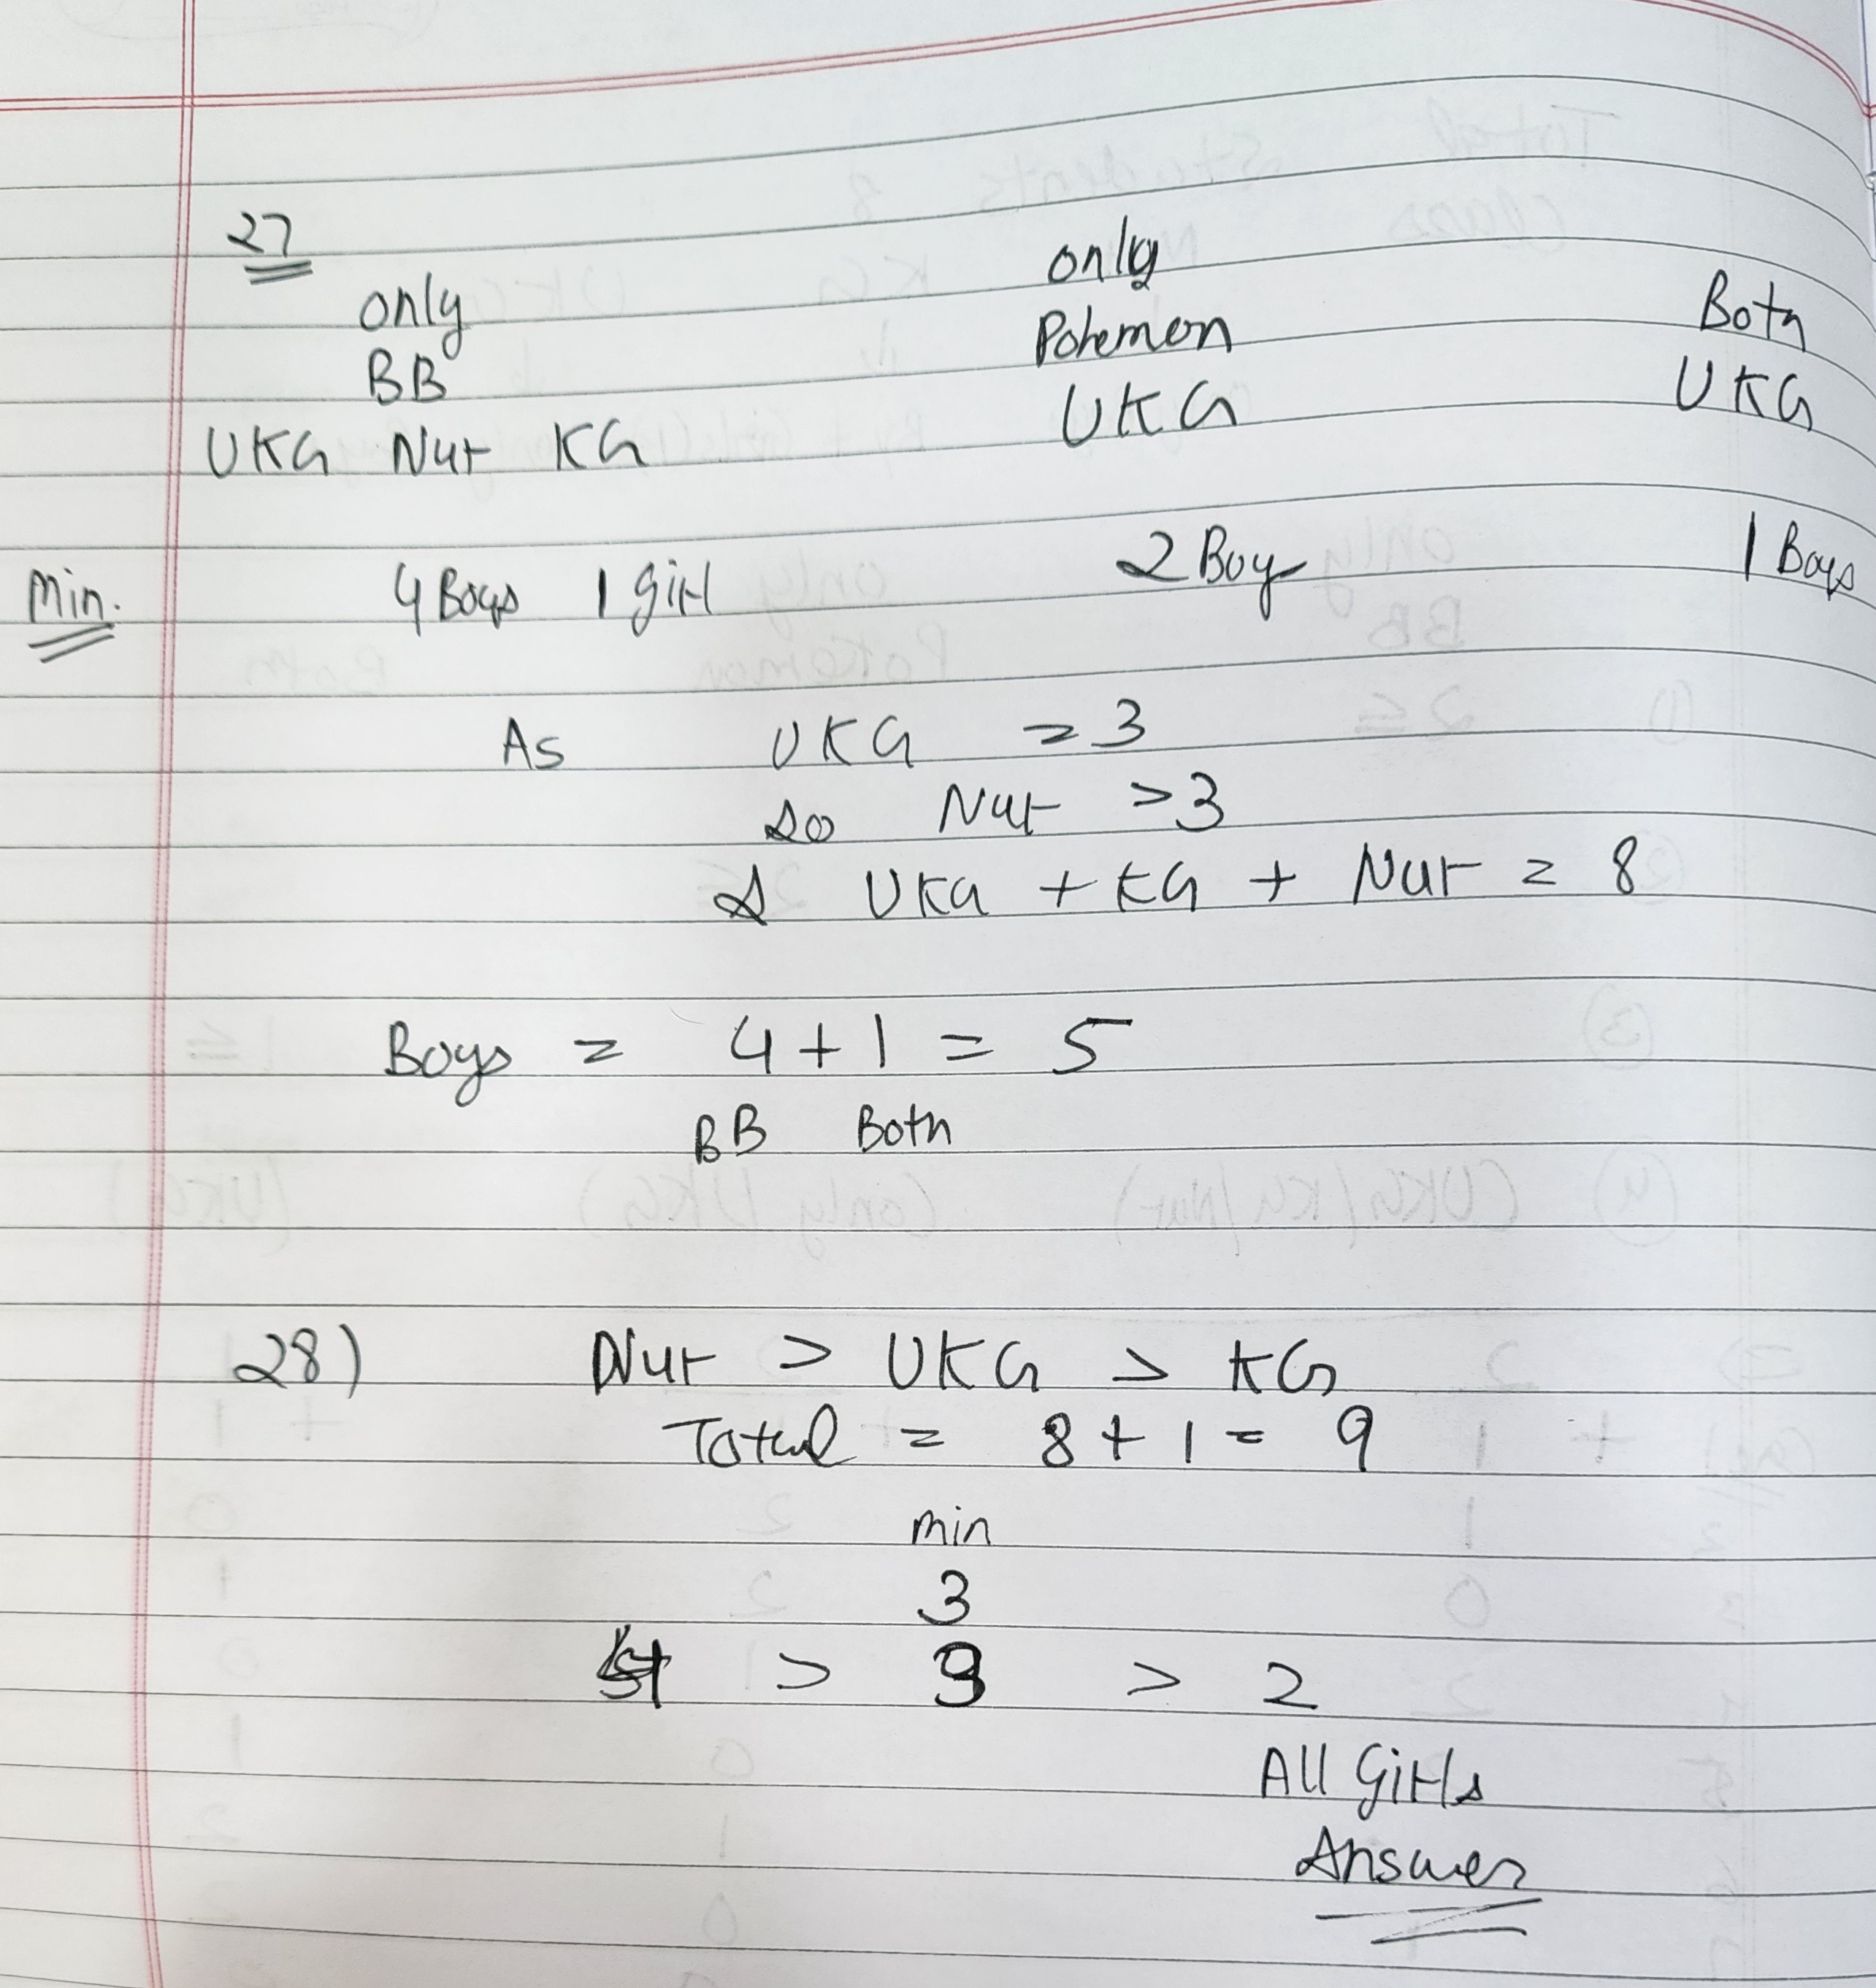 27
only only Both
BB Pokemon UKG
UKG Nur KG UKG
Min. 4 Boys 1 girl 2 Boy 1 Boys
As UKG = 3
so Nur > 3
UKG + KG + Nur = 8
Boys = 4 + 1 = 5
BB Both
28) Nur > UKG > KG
Total = 8 + 1 = 9
min
3
> 3 > 2
All Girls
Answer